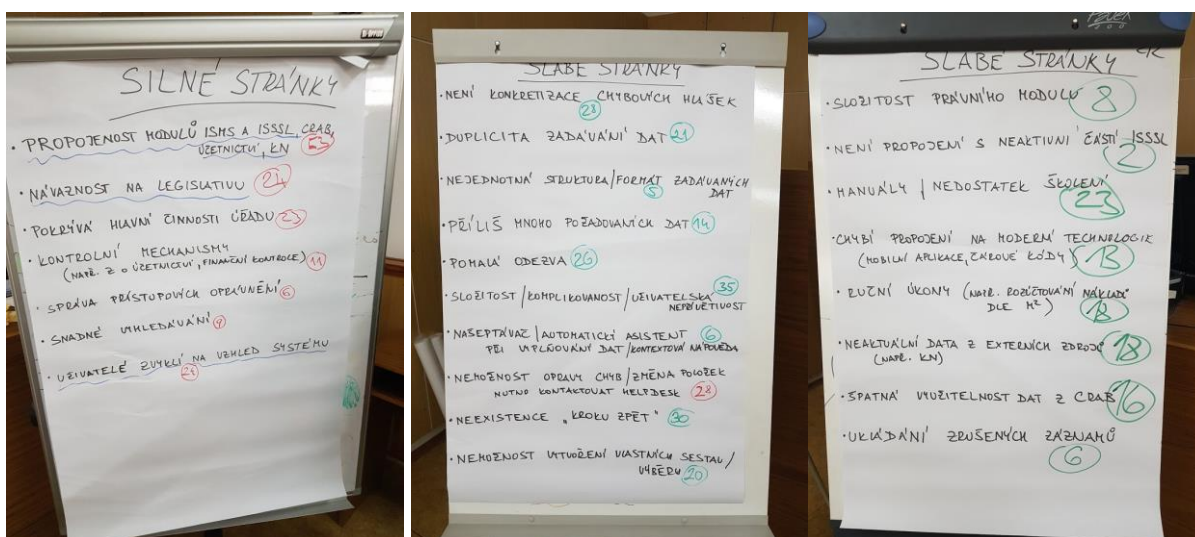 SILNÉ STRÁNKY
• PROPOJENOST MODULŮ ISMS A ISSSL, CRAB,
ÚČETNICTVÍ, KN 53
• NÁVAZNOST NA LEGISLATIVU 24
• POKRÝVÁ HLAVNÍ ČINNOSTI ÚŘADU 23
• KONTROLNÍ MECHANISMY
(NAPŘ. Z O ÚČETNICTVÍ, FINANČNÍ KONTROLE) 11
• SPRÁVA PŘÍSTUPOVÝCH OPRÁVNĚNÍ 6
• SNADNÉ VYHLEDÁVÁNÍ 9
• UŽIVATELÉ ZVYKLÍ NA VZHLED SYSTÉMU
24
SLABÉ STRÁNKY
• NENÍ KONKRETIZACE CHYBOVÝCH HLÁŠEK
28
• DUPLICITA ZADÁVÁNÍ DAT 21
• NEJEDNOTNÁ STRUKTURA/FORMÁT ZADÁVANÝCH
5 DAT
• PŘÍLIŠ MNOHO POŽADOVANÝCH DAT 14
• POMALÁ ODEZVA 26
• SLOŽITOST/KOMPLIKOVANOST/UŽIVATELSKÁ 35
NEPŘÍVĚTIVOST
• NAŠEPTÁVAČ/AUTOMATICKÝ ASISTENT 6
PŘI VYPLŇOVÁNÍ DAT/KONTEXTOVÁ NÁPOVĚDA
• NEMOŽNOST OPRAVY CHYB/ZMĚNA POLOŽEK
NUTNO KONTAKTOVAT HELPDESK 28
• NEEXISTENCE „KROKU ZPĚT" 30
• NEMOŽNOST VYTVOŘENÍ VLASTNÍCH SESTAV/
VÝBĚRU 20
SLABÉ STRÁNKY
• SLOŽITOST PRÁVNÍHO MODULU 8
• NENÍ PROPOJENÍ S NEAKTIVNÍ ČÁSTÍ ISSSL
2
• MANUÁLY / NEDOSTATEK ŠKOLENÍ
23
• CHYBÍ PROPOJENÍ NA MODERNÍ TECHNOLOGIE
(MOBILNÍ APLIKACE, ČÁROVÉ KÓDY) 13
• RUČNÍ ÚKONY (NAPŘ. ROZÚČTOVÁNÍ NÁKLADŮ
DLE M²) 18
• NEAKTUÁLNÍ DATA Z EXTERNÍCH ZDROJŮ 18
(NAPŘ. KN)
• ŠPATNÁ VYUŽITELNOST DAT Z CRAB 16
• UKLÁDÁNÍ ZRUŠENÝCH ZÁZNAMŮ
6